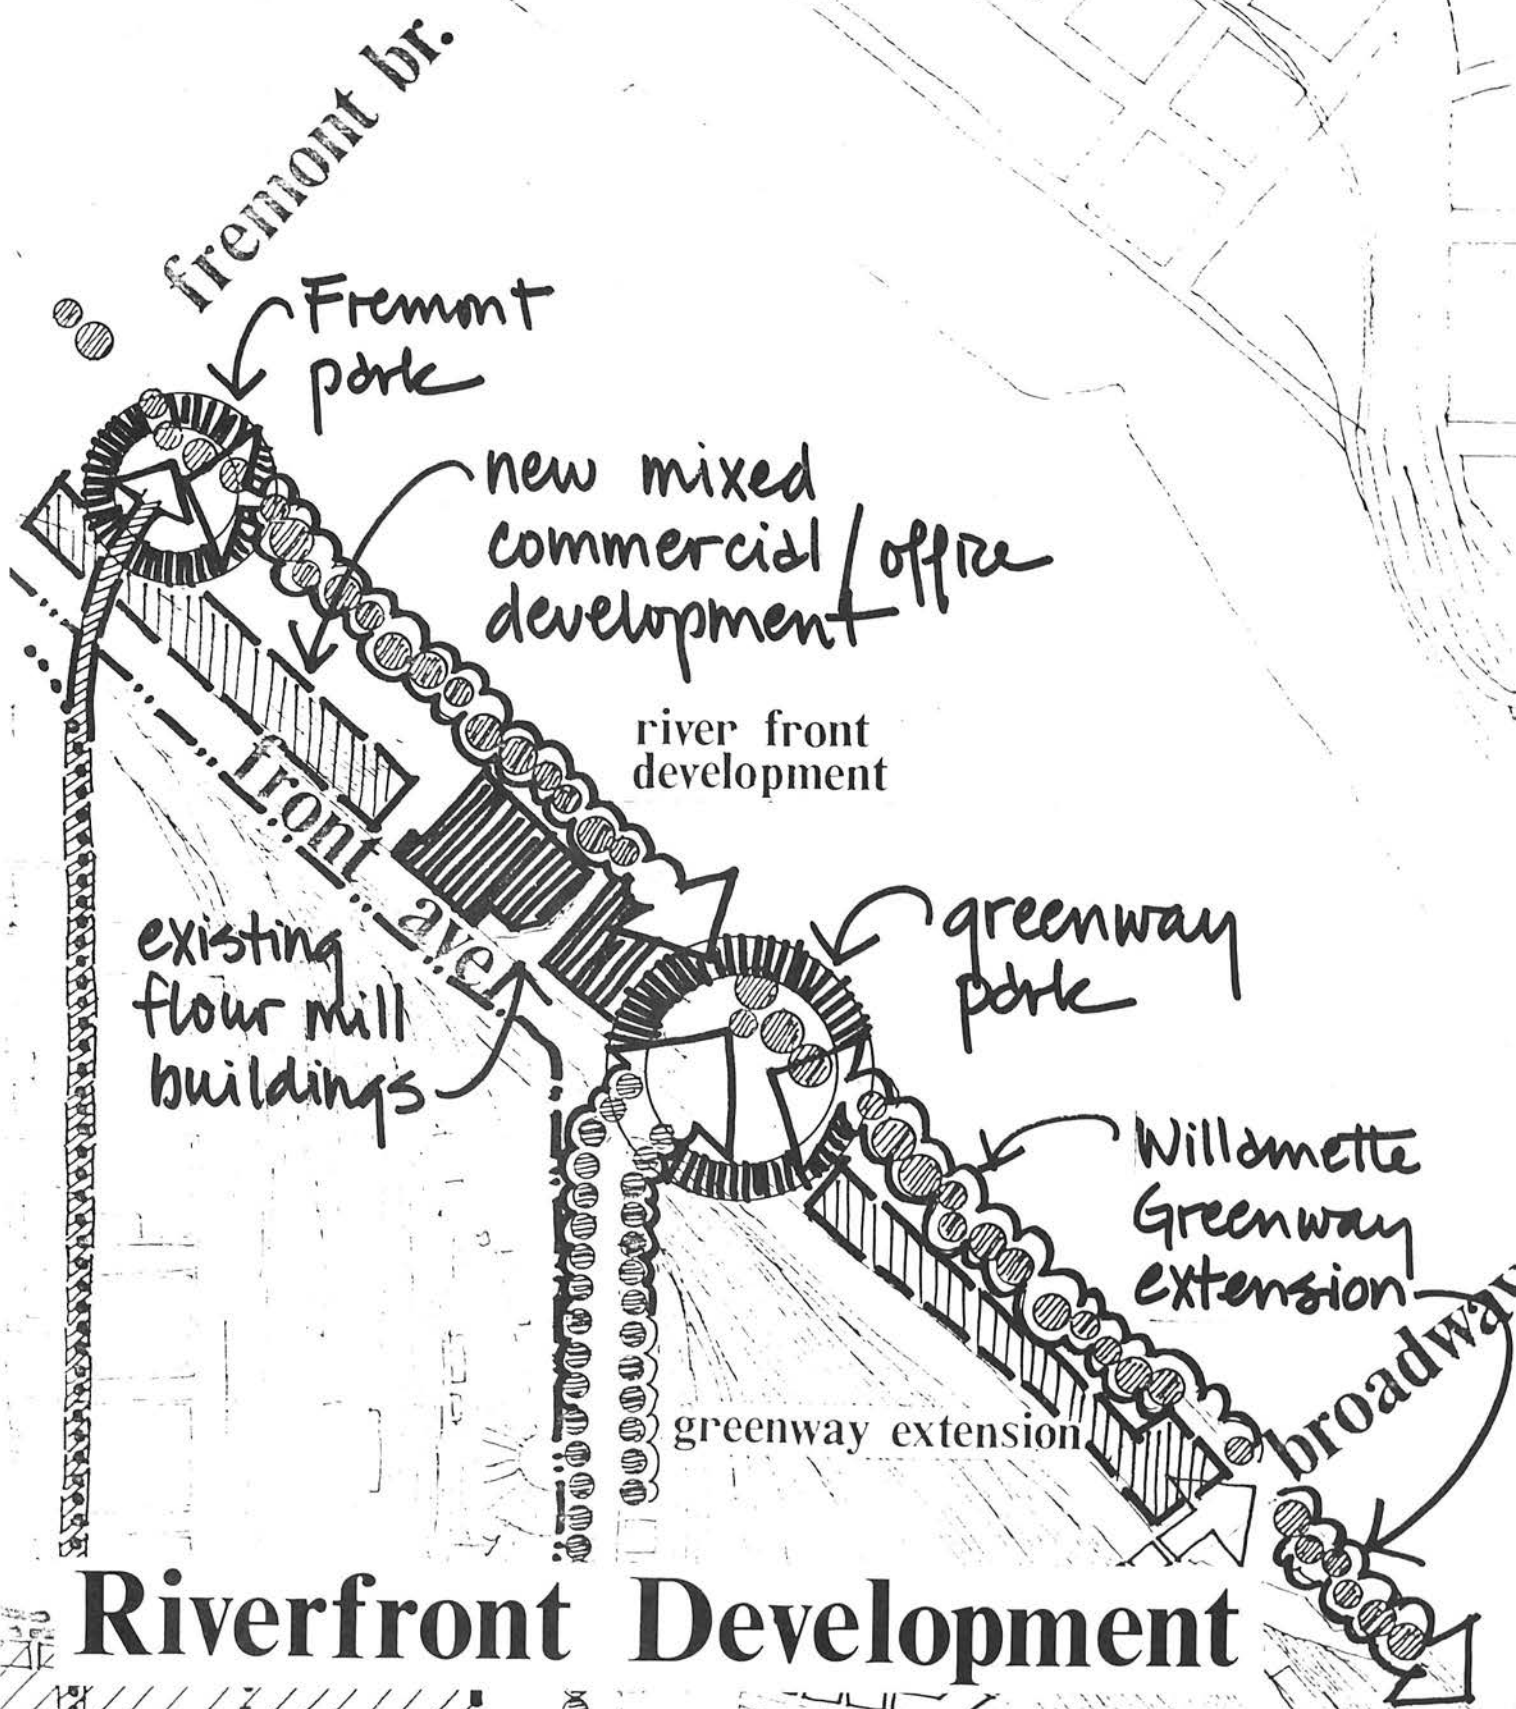 fremont br.
Fremont
park
new mixed
commercial / office
development
river front
development
front ave.
existing
flour mill
buildings
greenway
park
Willamette
Greenway
extension
greenway extension
Riverfront Development